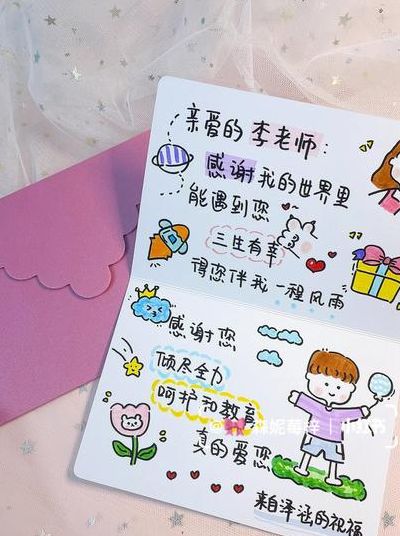 亲爱的李老师:
感谢我的世界里
能遇到您
三生有幸
得您伴我一程风雨
感谢您
倾尽全力
呵护和教育
真的爱您
来自泽涵的祝福